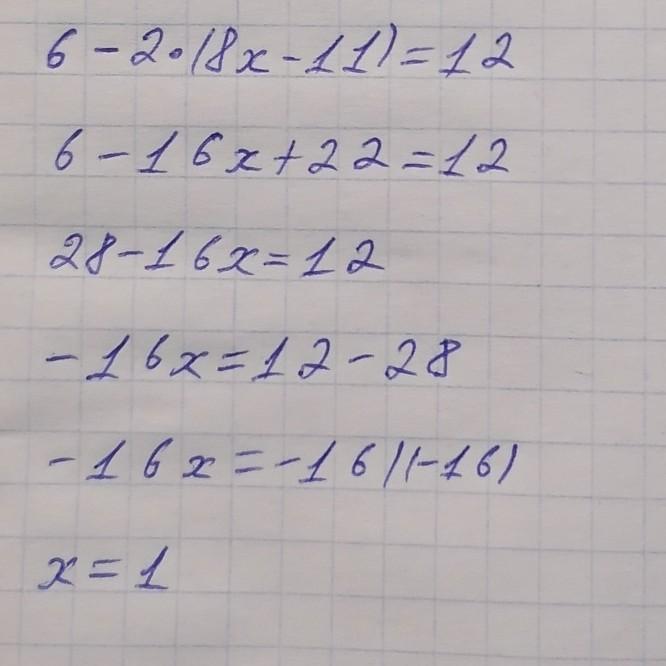 6 - 2·(8x - 11) = 12
6 - 16x + 22 = 12
28 - 16x = 12
-16x = 12 - 28
-16x = -16 )(-16)
x = 1